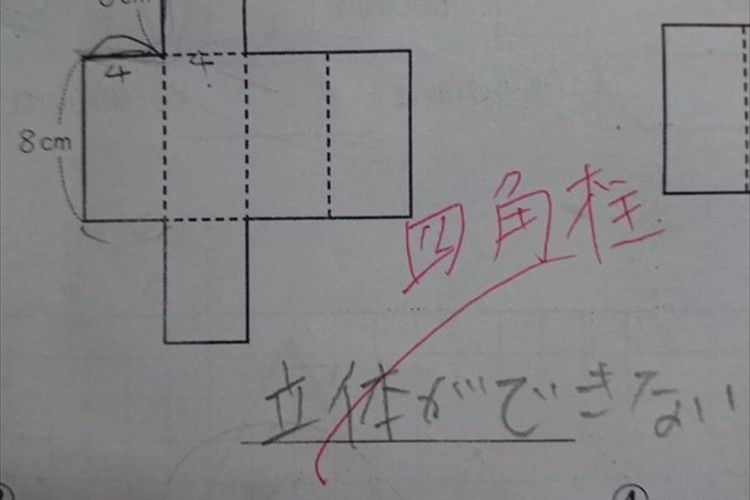 cm
4 4
8cm
四角柱
立体ができない